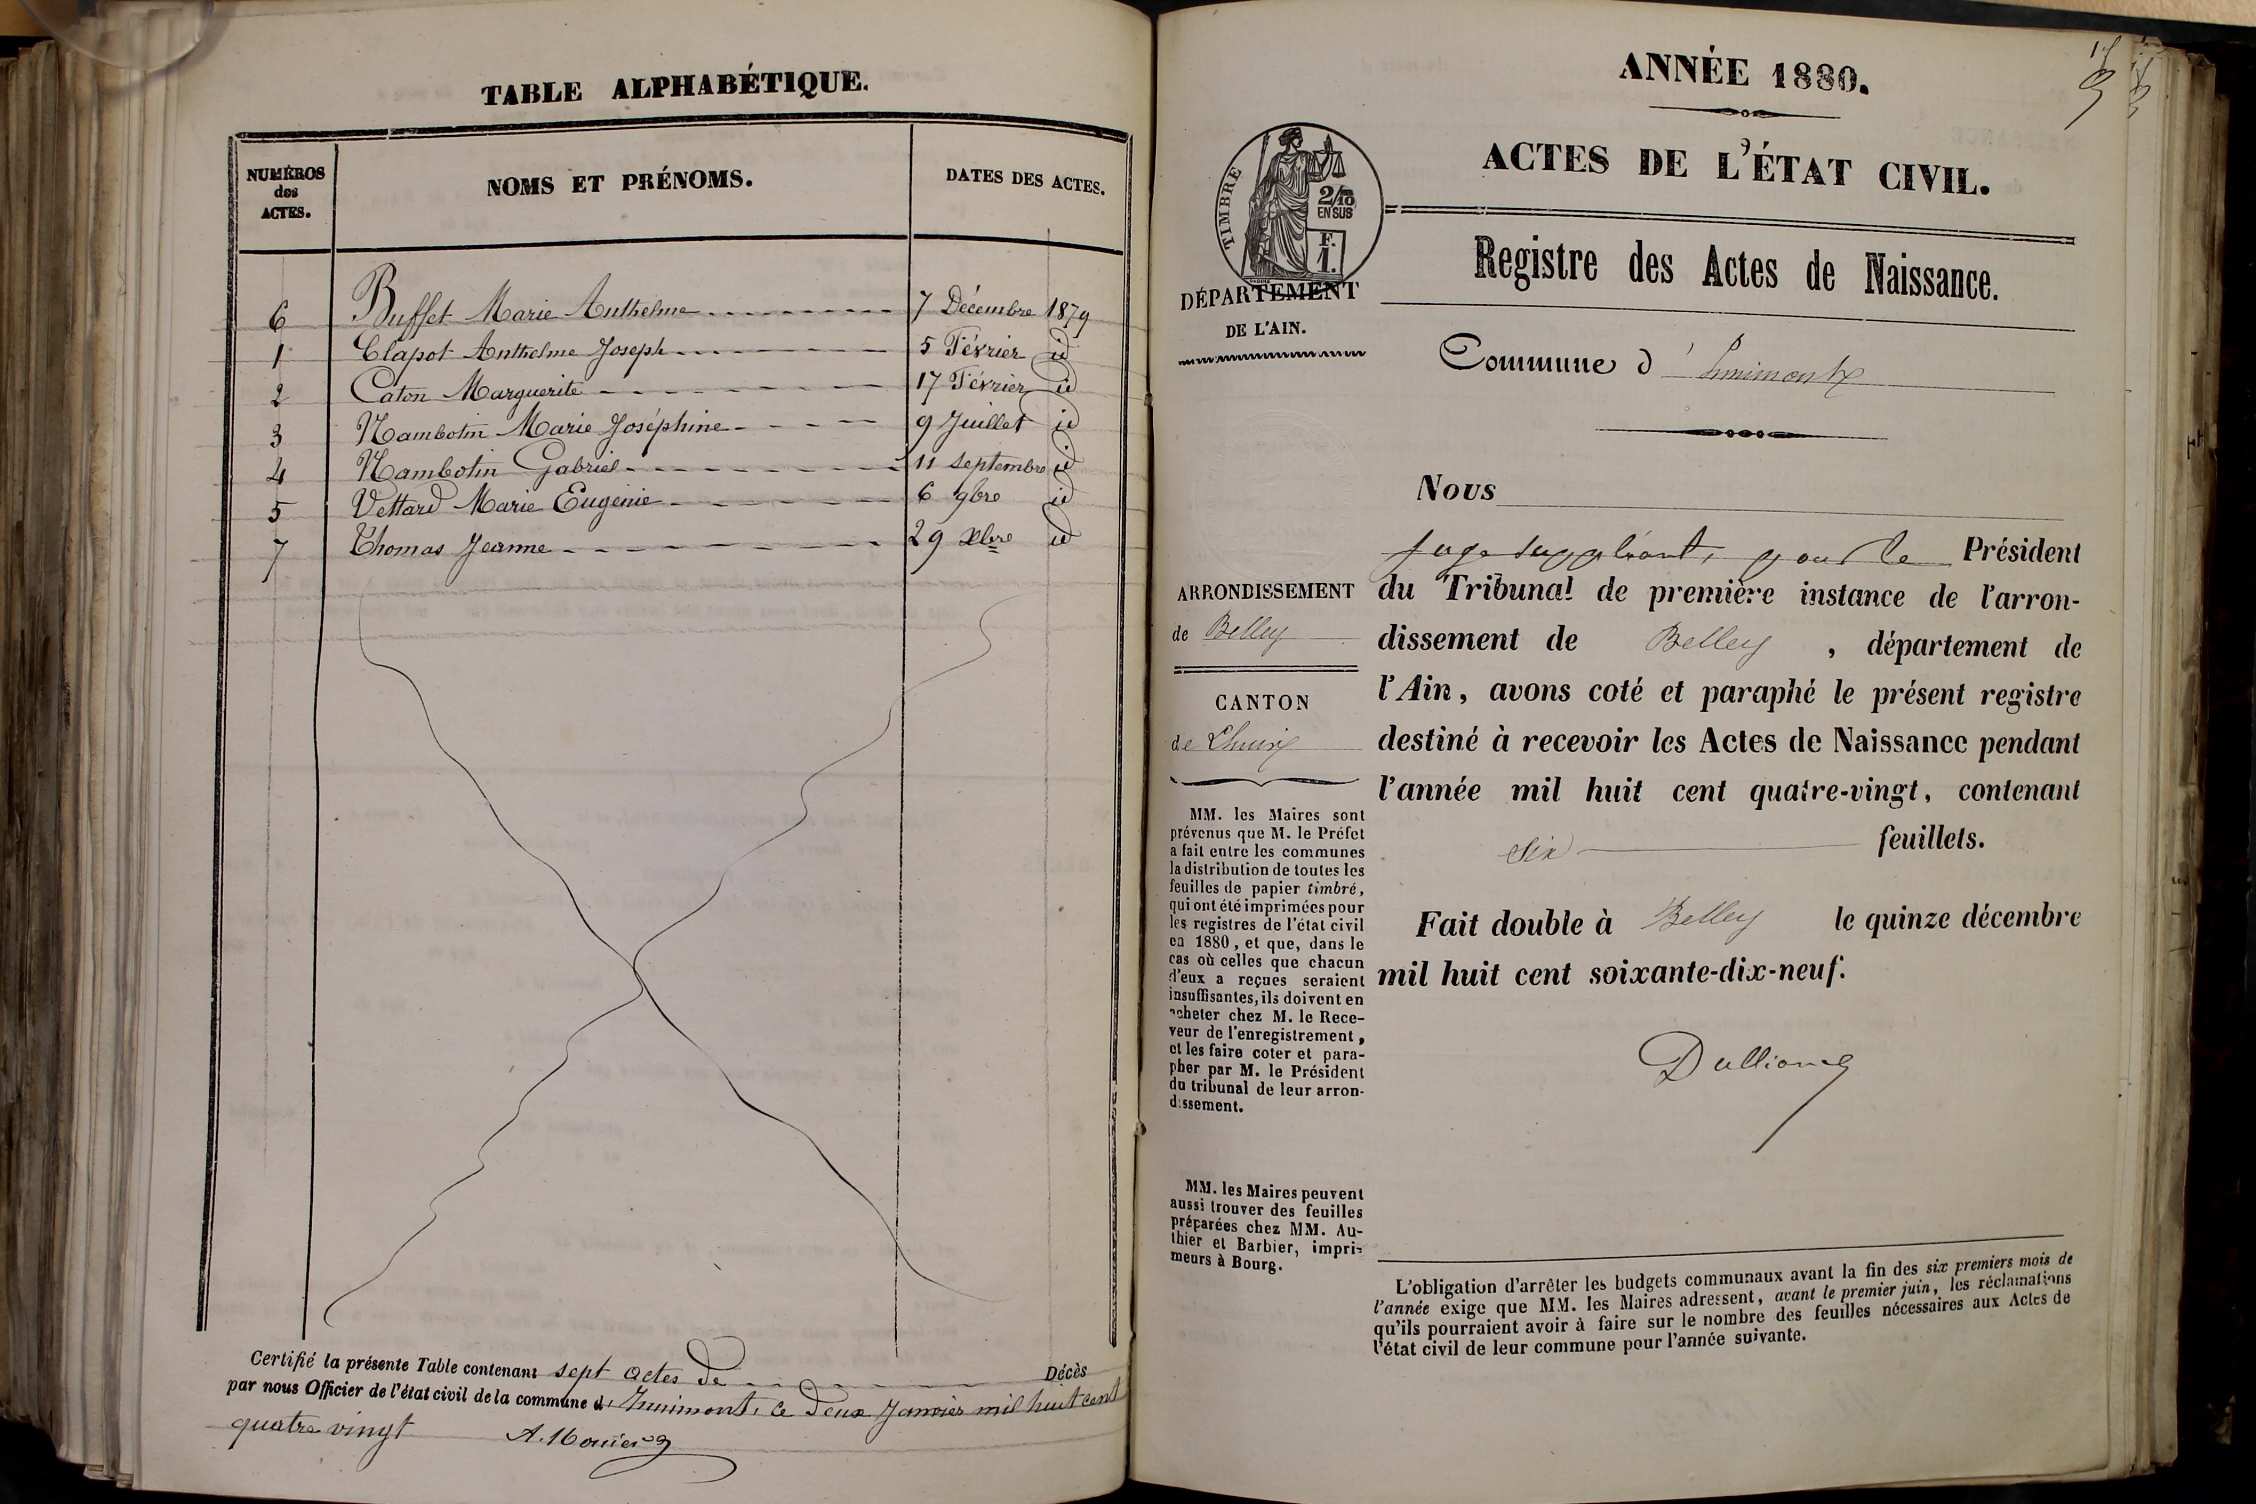 TABLE ALPHABÉTIQUE.
NUMÉROS
des
ACTES.
NOMS ET PRÉNOMS.
DATES DES ACTES.
6 Buffet Marie Anthelme 7 Décembre 1879
1 Clapot Anthelme Joseph 5 Février id
2 Caton Marguerite 17 Février id
3 Nambotin Marie Joséphine 9 Juillet id
4 Nambotin Gabriel 11 septembre id
5 Vettard Marie Eugénie 6 9bre id
7 Thomas Jeanne 29 xbre id
Certifié la présente Table contenant sept actes de Décès
par nous Officier de l'état civil de la commune d' Innimont, ce deux Janvier mil huit cent
quatre vingt
ANNÉE 1880.
ACTES DE L'ÉTAT CIVIL.
TIMBRE
2/10
EN SUS
F.
1.
Registre des Actes de Naissance.
DÉPARTEMENT
DE L'AIN.
Commune d' Innimont
Nous
juge suppléant, pour le Président
du Tribunal de première instance de l'arron-
dissement de Belley, département de
l'Ain, avons coté et paraphé le présent registre
destiné à recevoir les Actes de Naissance pendant
l'année mil huit cent quatre-vingt, contenant
six feuillets.
Fait double à Belley le quinze décembre
mil huit cent soixante-dix-neuf.
ARRONDISSEMENT
de Belley
CANTON
de Lhuis
MM. les Maires sont
prévenus que M. le Préfet
a fait entre les communes
la distribution de toutes les
feuilles de papier timbré,
qui ont été imprimées pour
les registres de l'état civil
en 1880, et que, dans le
cas où celles que chacun
d'eux a reçues seraient
insuffisantes, ils doivent en
acheter chez M. le Rece-
veur de l'enregistrement,
et les faire coter et para-
pher par M. le Président
du tribunal de leur arron-
dissement.
MM. les Maires peuvent
aussi trouver des feuilles
préparées chez MM. Au-
thier et Barbier, impri-
meurs à Bourg.
L'obligation d'arrêter les budgets communaux avant la fin des six premiers mois de
l'année exige que MM. les Maires adressent, avant le premier juin, les réclamations
qu'ils pourraient avoir à faire sur le nombre des feuilles nécessaires aux Actes de
l'état civil de leur commune pour l'année suivante.